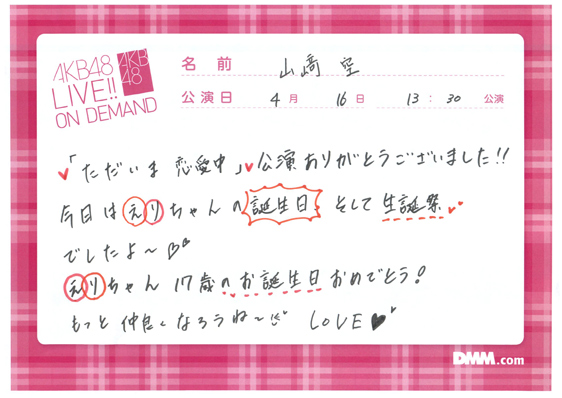 AKB48
LIVE!!
ON DEMAND
AKB
48
名前 山﨑 空
公演日 4月 16日 13:30 公演
「ただいま 恋愛中」公演ありがとうございました!!
今日はえりちゃんの誕生日 そして生誕祭
でしたよ〜
えりちゃん 17歳のお誕生日おめでとう!
もっと仲良くなろうね〜 LOVE
DMM.com